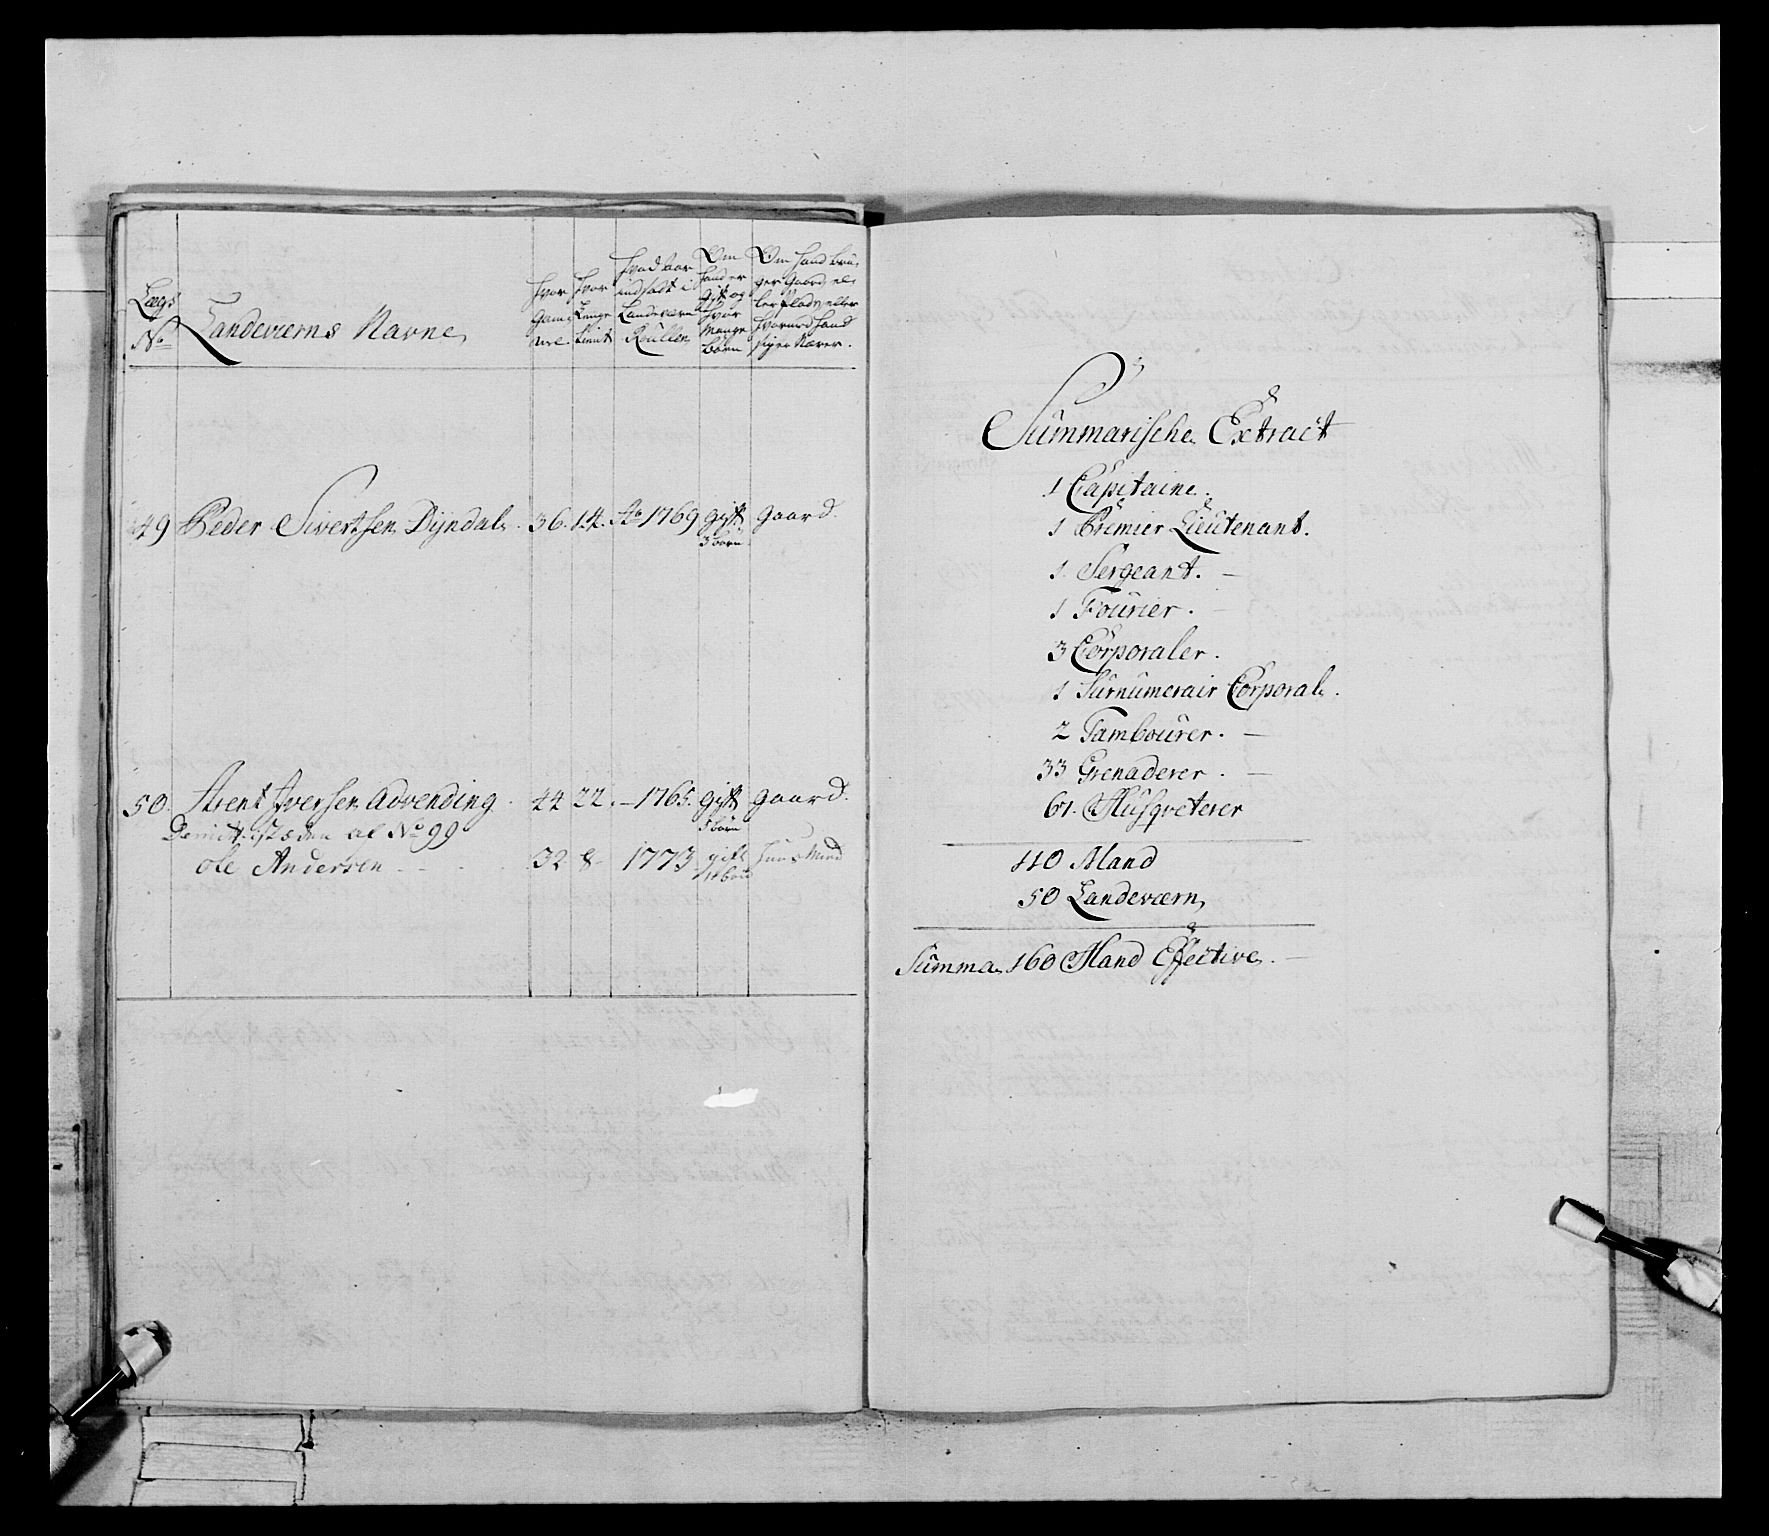 Lægs No
Landeværns Navne
Hvor Gam̄el
Hvor Lenge tient
Hvad Aar indsadt i Landeværn Roullen
Om hand er Gift og hvor Mange börn
Om hand bruger Gaard eller Plads eller hvormed hand sig er Nærer.
49 Peder Sivertsen Dyndal. 36. 14. Ao 1769 gift Gaard.
3 börn
50. Arent Iversen Advending. 44 22. – 1765. gift gaard.
5 börn
Demitt. istæden af No 99
Ole Andersen 32 8 1773 gift huus Mand
1 barn
Summarische Extract
1 Capitaine.
1 Premier Lieutenant.
1. Sergeant. –
1 Fourier. –
3 Corporaler.
1 Surnumerair Corporal.
2 Tambourer. –
33 Grenaderer. –
67. Musqveterer
110 Mand
50 Landeværn
Summa 160 Mand Effective. –